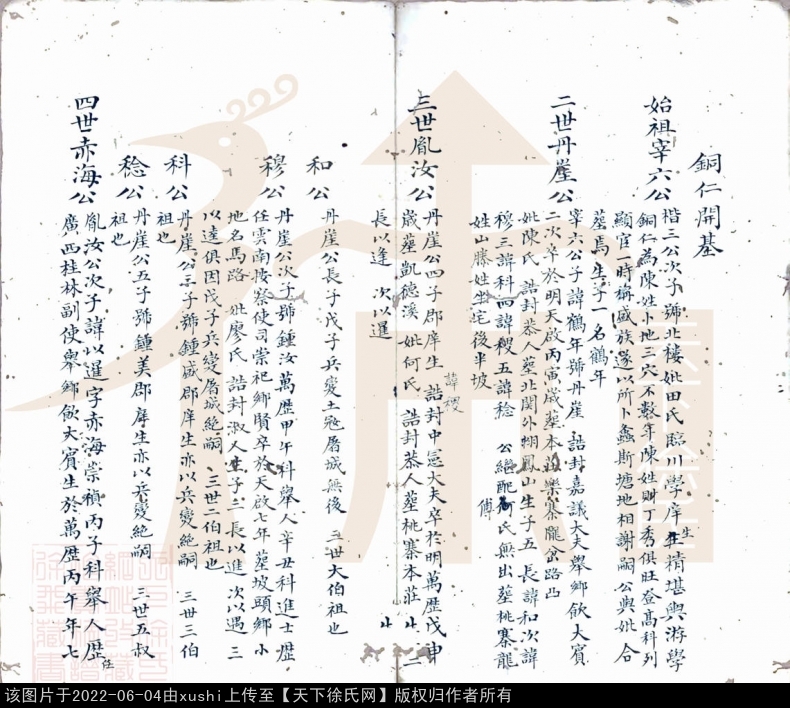 銅仁開基
始祖宰六公
揩三公次子號北樓妣田氏臨川學庠生精堪輿游學
銅仁為陳姓卜地三穴不數年陳姓財丁秀俱旺登高科列
顯官一時稱盛族遂以所卜螽斯塘地相謝嗣公與妣合
墓馬生子一名鶴年
二世丹崖公
宰六公子諱鶴年號丹崖 誥封嘉議大夫舉鄉飲大賓
二次卒於明天啟丙寅歲葬本樂寨龍岔路凸
妣陳氏 誥封恭人葬北關外翱鳳山生子五 長諱和次諱
穆三諱科四諱稷五諱稔 公繼配傅氏無出葬桃寨龍
姓山滕姓坐宅後半坡
諱稷
三世胤汝公
丹崖公四子郡庠生 誥封中憲大夫卒於明萬歷戊申
歲葬凱德溪 妣何氏 誥封恭人葬桃寨本莊 生二
長以逢 次以暹
和公
丹崖公長子戊子兵變土冦屠城無後 三世大伯祖也
穆公
丹崖公次子號鍾汝萬歷甲午科舉人辛丑科進士歷
任雲南按察使司崇祀鄉賢卒於天啟七年葬坡頭鄉小
地名馬路 妣廖氏 誥封淑人生子三 長以進 次以遇 三
以逵俱因戊子兵變屠城絶嗣 三世二伯祖也
科公
丹崖公三子號鍾盛郡庠生亦以兵變絶嗣 三世三伯
祖也
稔公
丹崖公五子號鍾美郡庠生亦以兵變絶嗣 三世五叔
祖也
四世赤海公
胤汝公次子諱以暹字赤海崇禎丙子科舉人歷任
廣西桂林副使舉鄉飲大賓生於萬歷丙午年七
该图片于2022-06-04由xushi上传至【天下徐氏网】版权归作者所有